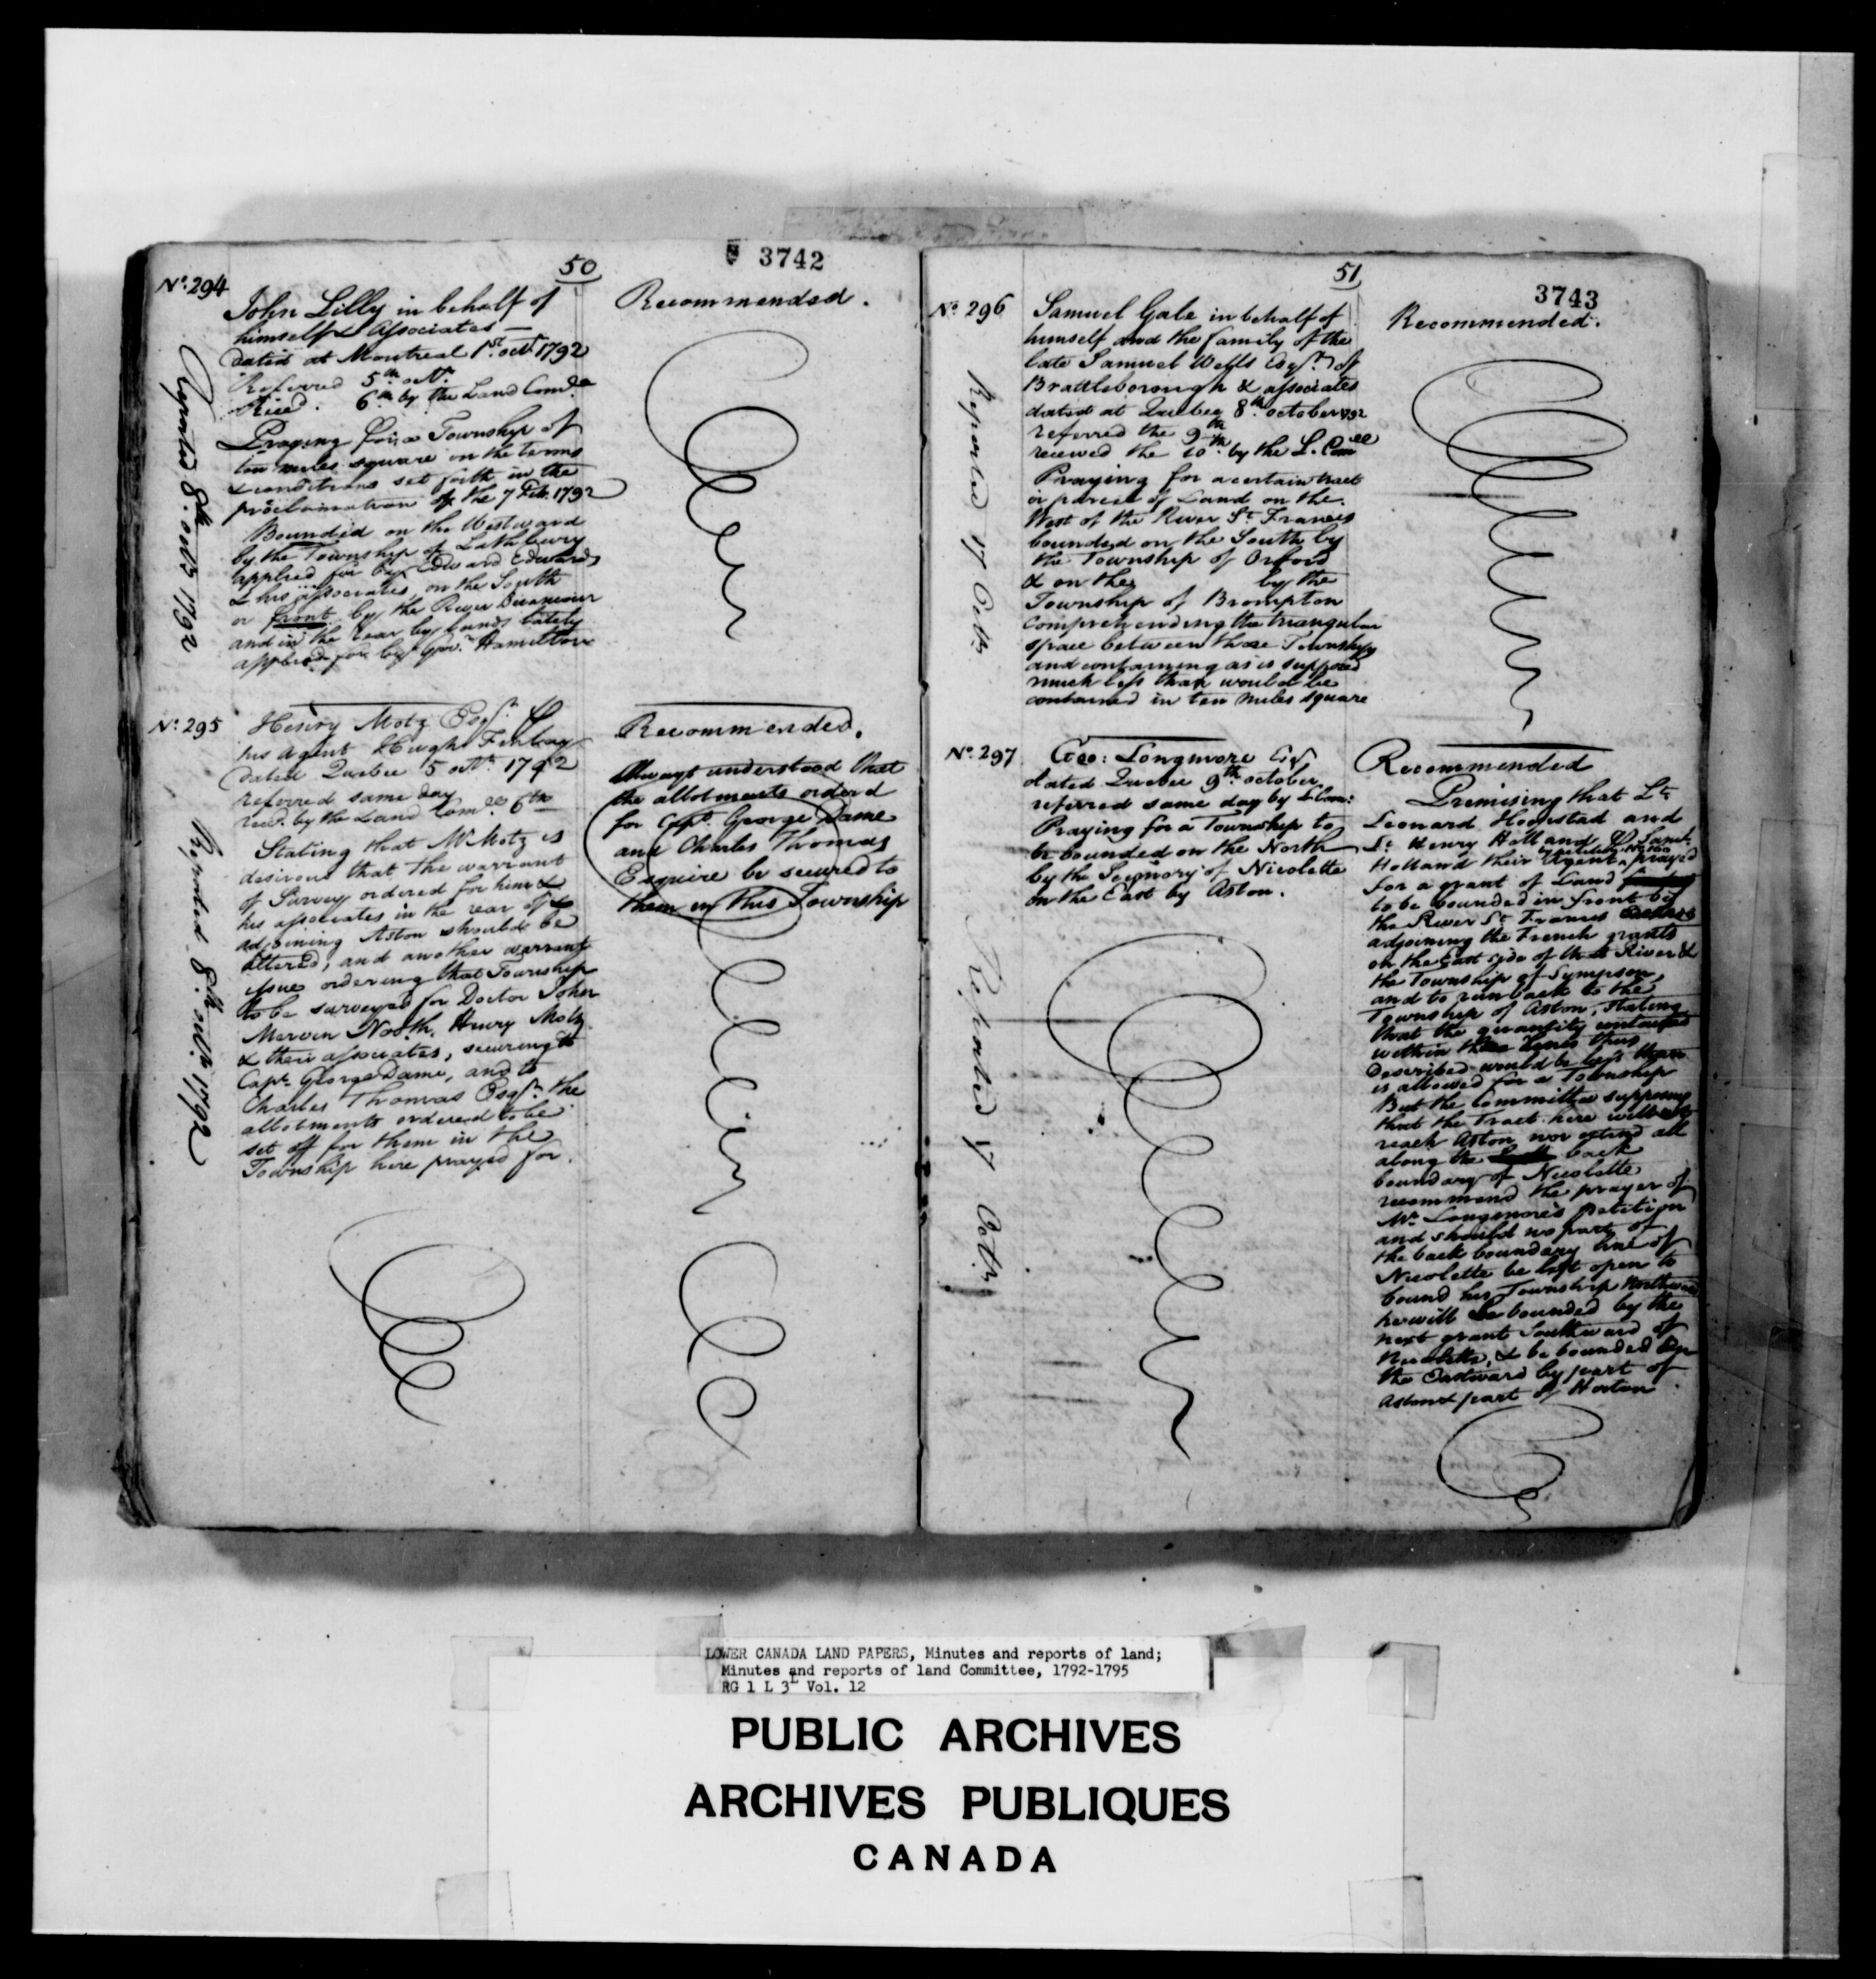 50
3742
Nº. 294
John Lilly in behalf of
himself & Associates —
dated at Montreal 1st. octr. 1792
Referred 5th octr.
Recd. 6th by the Land Comee
Praying for a Township of
ten miles square on the terms
& conditions set forth in the
proclamation of the 7 Feb. 1792
Bounded on the Westward
by the Township of Lathbury
applied for by Edward Edwards
& his associates, on the South
or front by the River Becancour
and in the rear by lands lately
applied for by Govr. Hamilton
Reported 8th. octr. 1792
Recommended.
Nº. 295
Henry Motz Esqr. by
his Agent Hugh Finlay
dated Quebec 5 octr. 1792
referred same day
recd. by the Land Comee 6th
Stating that Mr Motz is
desirous that the warrant
of Survey ordered for him &
his associates in the rear of &
adjoining Aston should be
altered, and another warrant
issue ordering that Township
to be surveyed for Doctor John
Mervin Nooth, Henry Motz
& their associates, securing to
Capt. George Dame, and to
Charles Thomas Esqr. the
allotments ordered to be
set off for them in the
Township here prayed for.
Reported 8th. octr. 1792
Recommended.
Always understood that
the allotments orderd
for Capt. George Dame
and Charles Thomas
Esquire be secured to
them in this Township
51
3743
Nº. 296
Samuel Gale in behalf of
himself and the family of the
late Samuel Wells Esqr. of
Brattleborough & associates
dated at Quebec 8th. october 1792
referred the 9th
received the 10th by the L. Comee
Praying for a certain tract
or parcel of Land on the
West of the River St. Francis
bounded on the South by
the Township of Orford
& on the by the
Township of Brompton
comprehending the triangular
space between those Townships
and containing as is supposed
much less than would be
contained in ten miles square
Reported 17 Octr.
Recommended.
Nº. 297
Geo: Longmore Esqr
dated Quebec 9th. october
referred same day by L Com:
Praying for a Township to
be bounded on the North
by the Seignory of Nicolette
on the East by Aston.
Reported 17 Octr.
Recommended
Premising that Lt.
Leonard Hompstad and
Lt. Henry Holland by
Holland their Agent prayed
for a grant of Land
to be bounded in front by
the River St. Francis
adjoining the French grants
on the East side of that River &
the Township of Sympson,
and to run back to the
Township of Aston, stating
that the quantity contained
within the lines thus
described would be less than
is allowed for a Township
But the Committee supposing
that the Tract here will not
reach Aston nor extend all
along the back
boundary of Nicolette
recommend the prayer of
Mr. Longmore's petition
and should no part of
the back boundary line of
Nicolette be left open to
bound his Township Northward
he will be bounded by the
next grant Southward of
Nicolette, & be bounded on
the Eastward by part of
Aston & part of Horton
LOWER CANADA LAND PAPERS, Minutes and reports of land;
Minutes and reports of land Committee, 1792-1795
RG 1 L 3L Vol. 12
PUBLIC ARCHIVES
ARCHIVES PUBLIQUES
CANADA